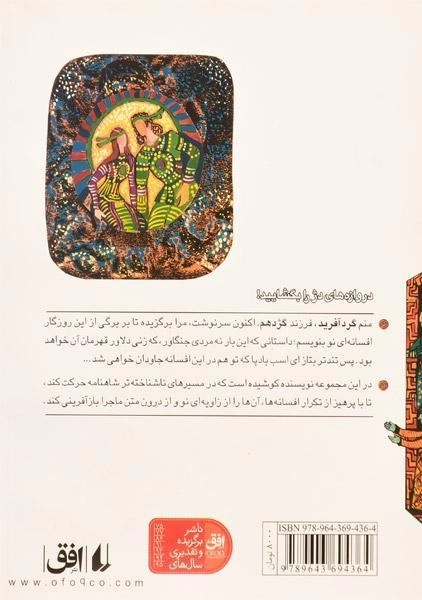 دروازه‌های دژ را بگشایید!
منم گردآفرید، فرزند گژدهم. اکنون سرنوشت، مرا برگزیده تا بر برگی از این روزگار
افسانه‌ای نو بنویسم؛ داستانی که این بار نه مردی جنگاور، که زنی دلاور قهرمان آن خواهد
بود. پس تندتر بتاز ای اسب بادپا که تو هم در این افسانه جاودان خواهی شد...
در این مجموعه نویسنده کوشیده است که در مسیرهای ناشناخته‌تر شاهنامه حرکت کند،
تا با پرهیز از تکرار افسانه‌ها، آن‌ها را از زاویه‌ای نو و از درون متن ماجرا بازآفرینی کند.
ناشر
برگزیده
و تقدیری
سال‌های
افق
OFOQ
افق
www.ofoqco.com
ISBN 978-964-369-436-4
9 789643 694364
۸۰۰۰ تومان